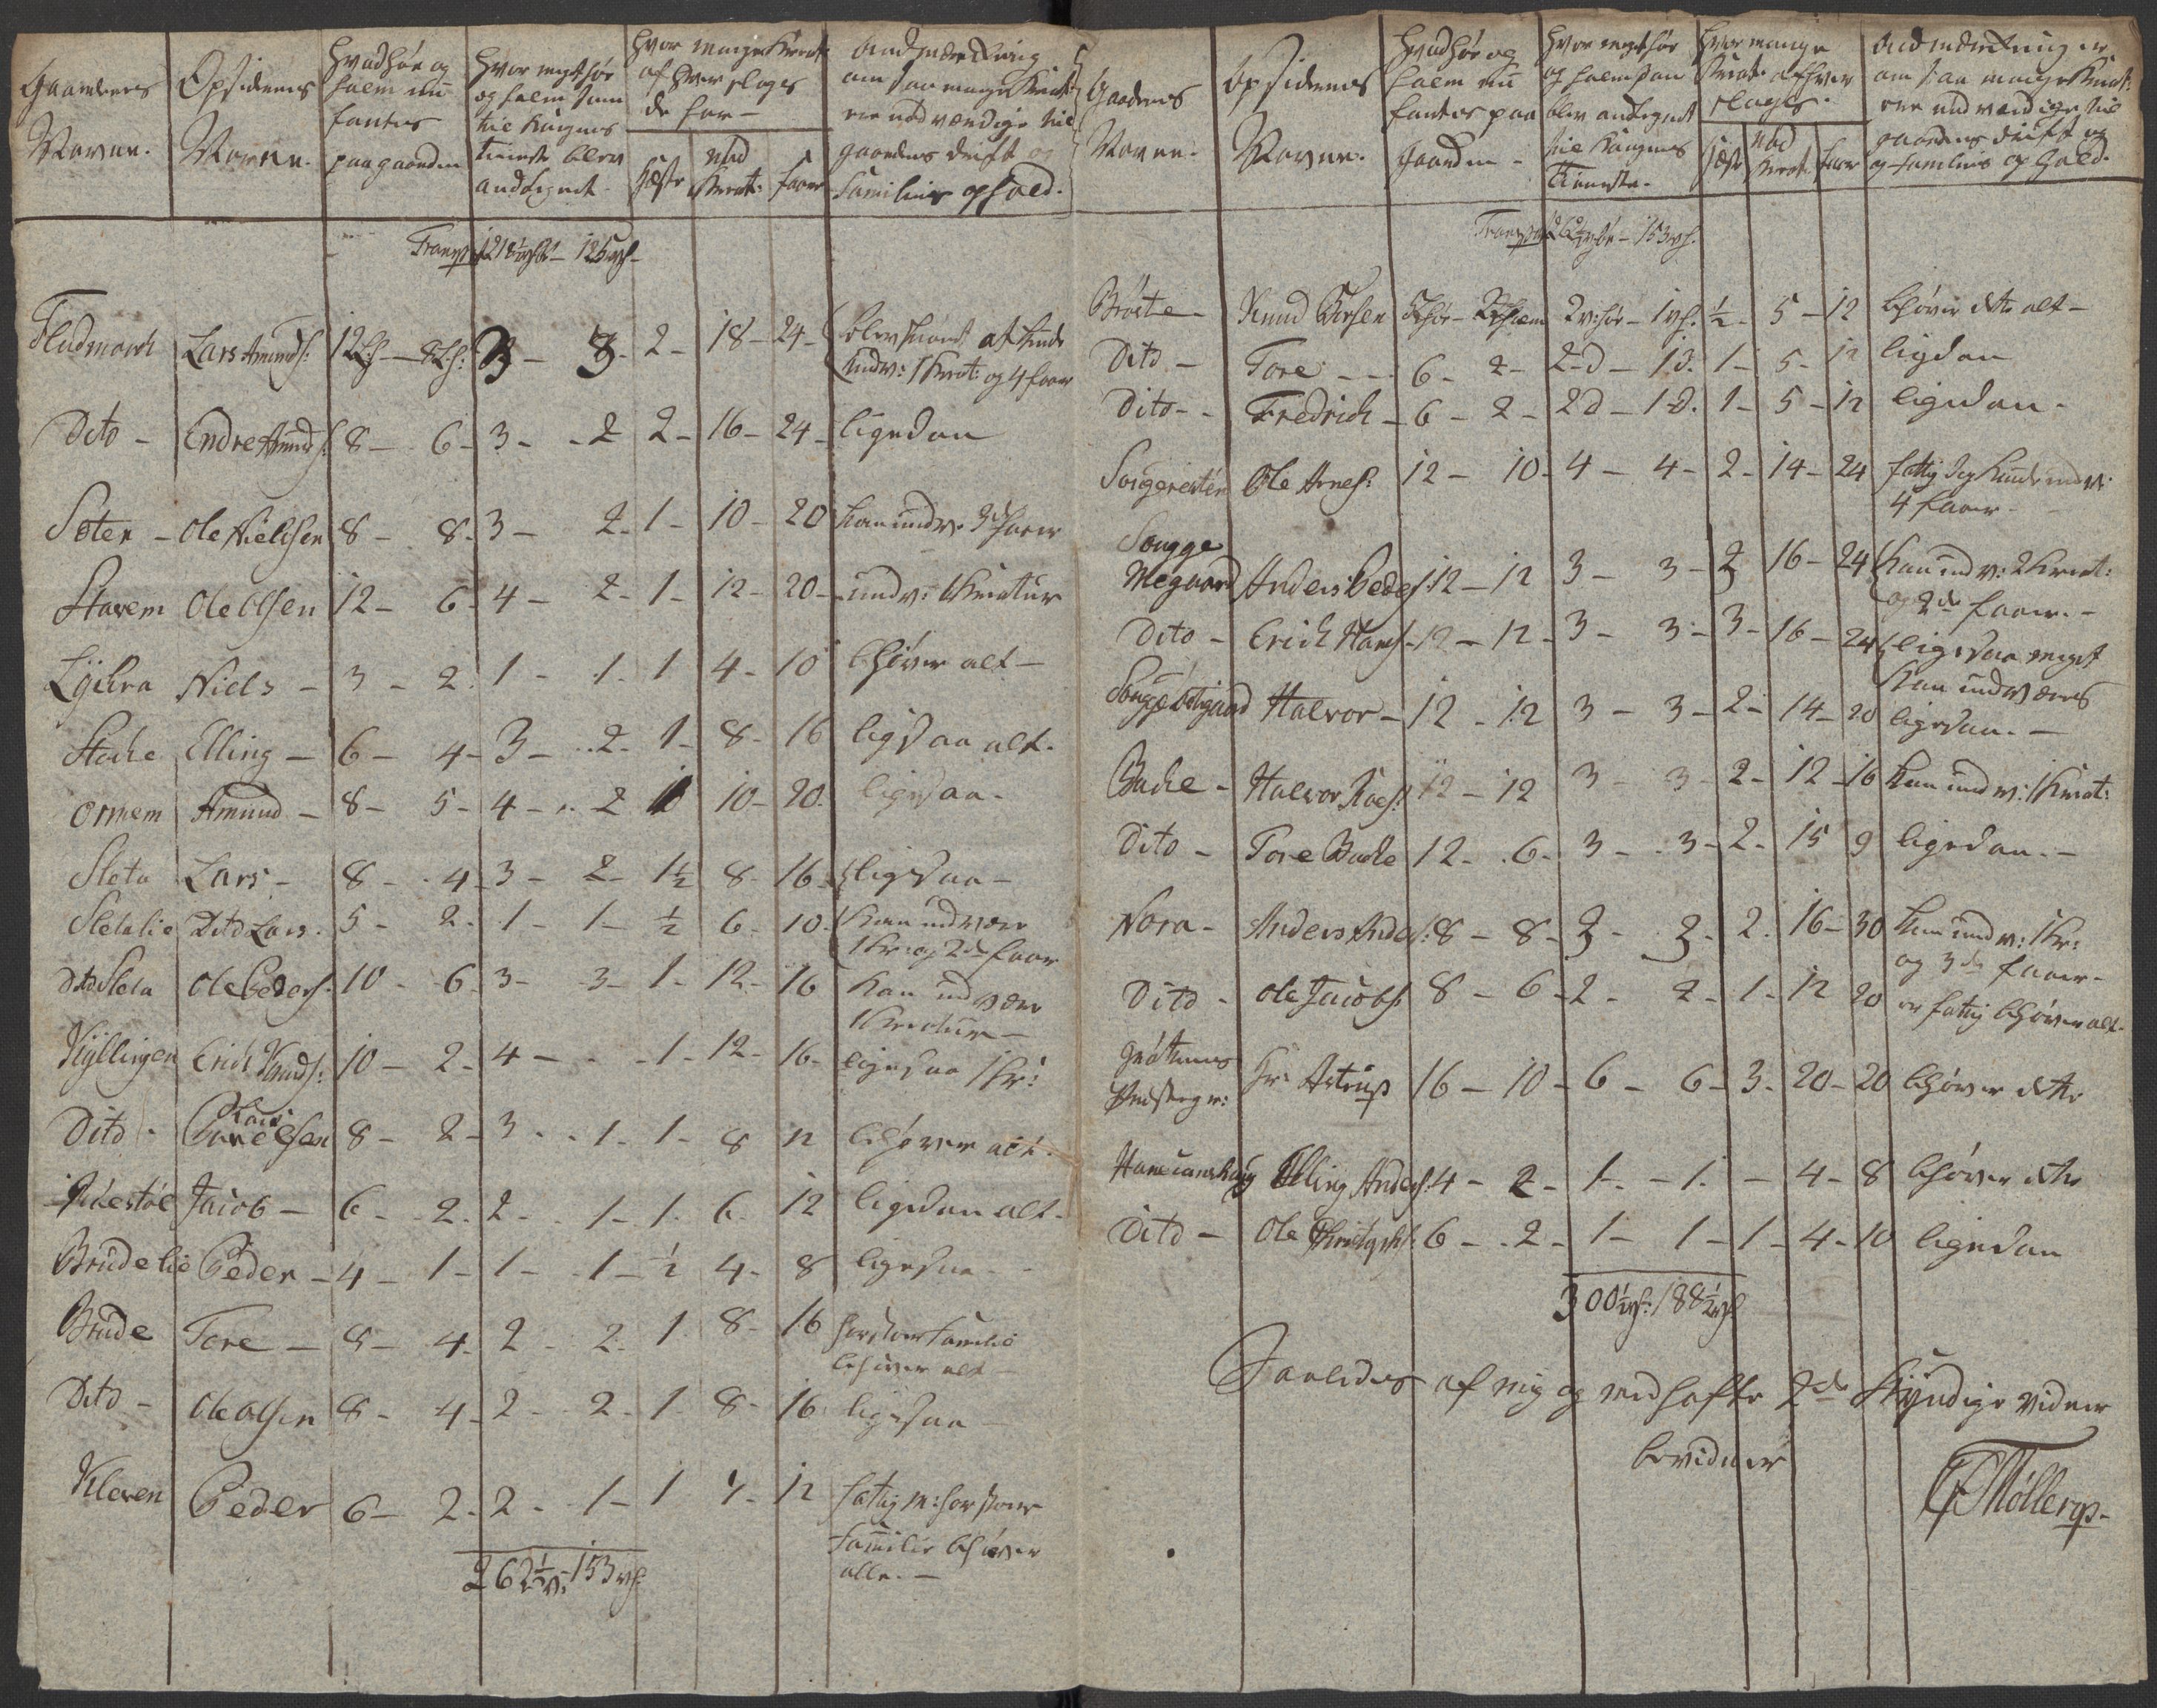 Gaardenes Navne.
Opsidernes Navne.
Hvad høe og halm nu fantes paa gaarden
Hvor meget høe og halm som til Kongens tieneste blev andsegnet.
Hvor mange Kreat: af hver slags de har —
Heste
Nød Kreat:
faar
Andmærkning om saa mange Kreat: ere nødvendige til gaardens drift og Familiens ophold.
Transp 218½ — 125
Fladmoch Lars Amunds: 12 — 8 3 — 3 2 — 18 — 24 —
Kudv: 1 Kreat: og 4 faar
Dito — Endre Amunds: 8 — 6 — 3 — 2 2 — 16 — 24 — ligedan
Soter — Ole Nielsen 8 — 8 — 3 — 2 — 1 — 10 — 20 kan undv: 2de faar
Stavem Ole Olsen 12 — 6 — 4 — 2 — 1 — 12 — 20 — undv: 1 Kreatur
Lÿkra Niels — 3 — 2 1 — 1 — 1 4 — 10 behøver alt —
Stocke Elling — 6 — 4 — 3 — 2 — 1 — 8 — 16 ligesaa alt.
Ormem Amund — 8 — 5 — 4 — 2 10 — 20 ligesaa.
Sleta Lars — 8 — 4 — 3 — 2 — 1½ 8 — 16 ligesaa —
Sletalie Dito Lars. 5 — 2 — 1 — 1 — ½ 6 — 10 Kan undvære
1 Kr: og 2de faar
Dito Sleta Ole Peders: 10 — 6 — 3 — 3 — 1 — 12 — 16 Kan undvære
1 Kreatur —
Kÿllingen Erich Knuds: 10 — 2 — 4 — 1 — 12 — 16 — ligesaa 1 Kr:
Dito — Lars 8 — 2 — 3 — 1 — 1 — 8 12 behøver alt.
Jacob — 6 — 2 — 2 — 1 — 1 — 6 12 ligedan alt.
Brudelie Peder — 4 — 1 — 1 — 1 — ½ 4 — 8 ligesaa —
Brude Tore — 8 — 4 — 2 — 2 — 1 8 — 16 har stoer Familie
behøver alt —
Dito — Ole Olsen 8 — 4 — 2 — 2 — 1 8 — 16 ligesaa —
Kleven Peder 6 — 2 — 2 — 1 — 1 — 12 fattig har stoer
Familie behøver
alle. —
262½ — 153
Gaardenes Navne.
Opsidernes Navne.
Hvad høe og halm nu fantes paa gaarden —
Hvor meget høe og halm som blev andsegnet til Kongens Tieneste.
Hvor mange Kreat: af hver slags.
Heste
Nød Kreat
faar
Andmærkning er om saa mange Kreat: ere nødvendige til gaardens drift og og Familiens ophold.
Transp 262½ — 153
Brøste — Knud 5 — 2 2 — 1 ½ — 5 — 12 behøver dette alt —
Dito — Tore — 6 — 2 — 2 d — 1 d. 1 — 5 — 12 ligedan
Dito — Fredrich — 6 — 2 — 2 d — 1 d. 1 — 5 — 12 ligedan —
Ole Arnes: 12 — 10 — 4 — 4 — 2 — 14 — 24 fattig dog kunde undv:
4 faar —
Sougge
Megaard Anders Peders: 12 — 12 3 — 3 — 2 16 — 24 Kan undv: 2 Kreat:
og 2de faar. —
Dito — Erich Hans: 12 — 12 — 3 — 3 — 3 — 16 — 24 ligesaa meget
kan undværes
Halvor — 12 — 12 3 — 3 — 2 — 14 — 20 ligedan. —
Bache — Halvor 12 — 12 3 — 3 — 2 — 12 — 16 kan undv: 1 Kreat:
Dito — Tore Bache 12 — 6 — 3 — 3 — 2 — 15 9 ligedan. —
Nora — Anders Anders: 8 — 8 — 3 — 3 — 2. 16 — 30 kan undv: 1 Kr:
og 3de faar —
Dito — Ole Jacobs: 8 — 6 — 2 — 2 — 1 — 12 20 er fattig behøver alt —
Grøttenes
Hr: Astrup 16 — 10 — 6 — 6 — 3 — 20 — 20 behøver dette
Elling Anders: 4 — 2 — 1 — 1 — 4 — 8 behøver dette
Dito — Ole 6 — 2 — 1 — 1 — 1 — 4 — 10 ligedan
300½ 188½
Saaledes af mig og medhafte 2de Kÿndige vidner
bevidner
Møllerop